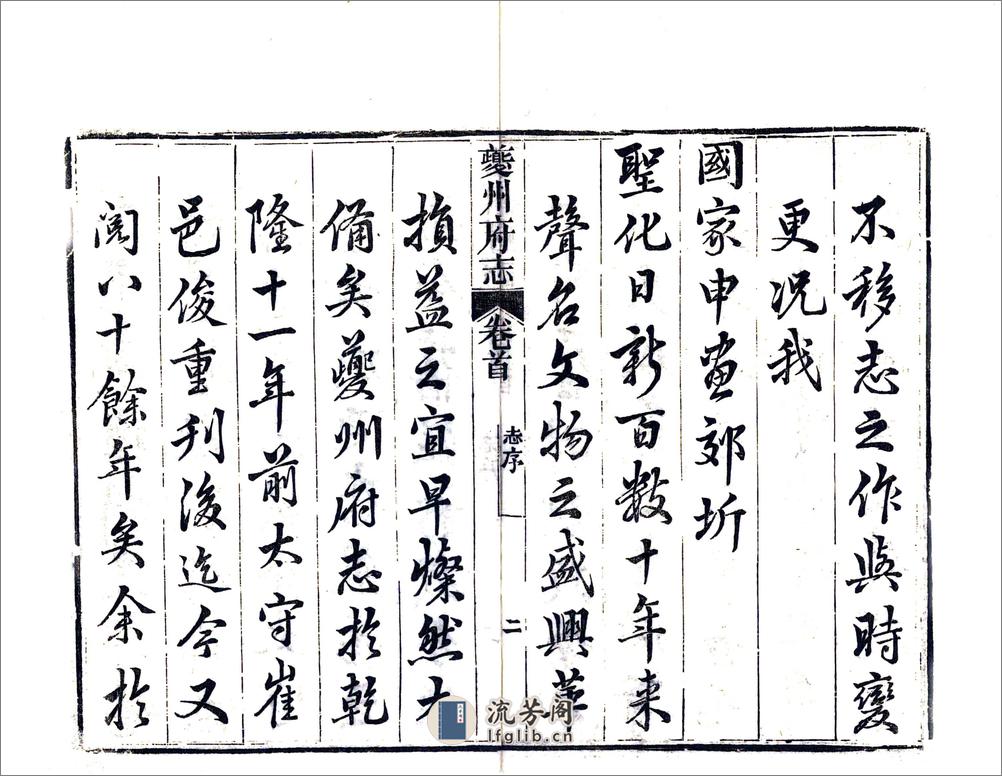 不移志之作與時變
更况我
國家申畫郊圻
聖化日新百数十年来
聲名文物之盛興革
夔州府志
卷首
志序
二
損益之宜早燦然大
備矣夔州府志扵乾
隆十一年前太守崔
邑俊重刋後迄今又
閲八十餘年矣余扵
流芳阁
lfglib.cn